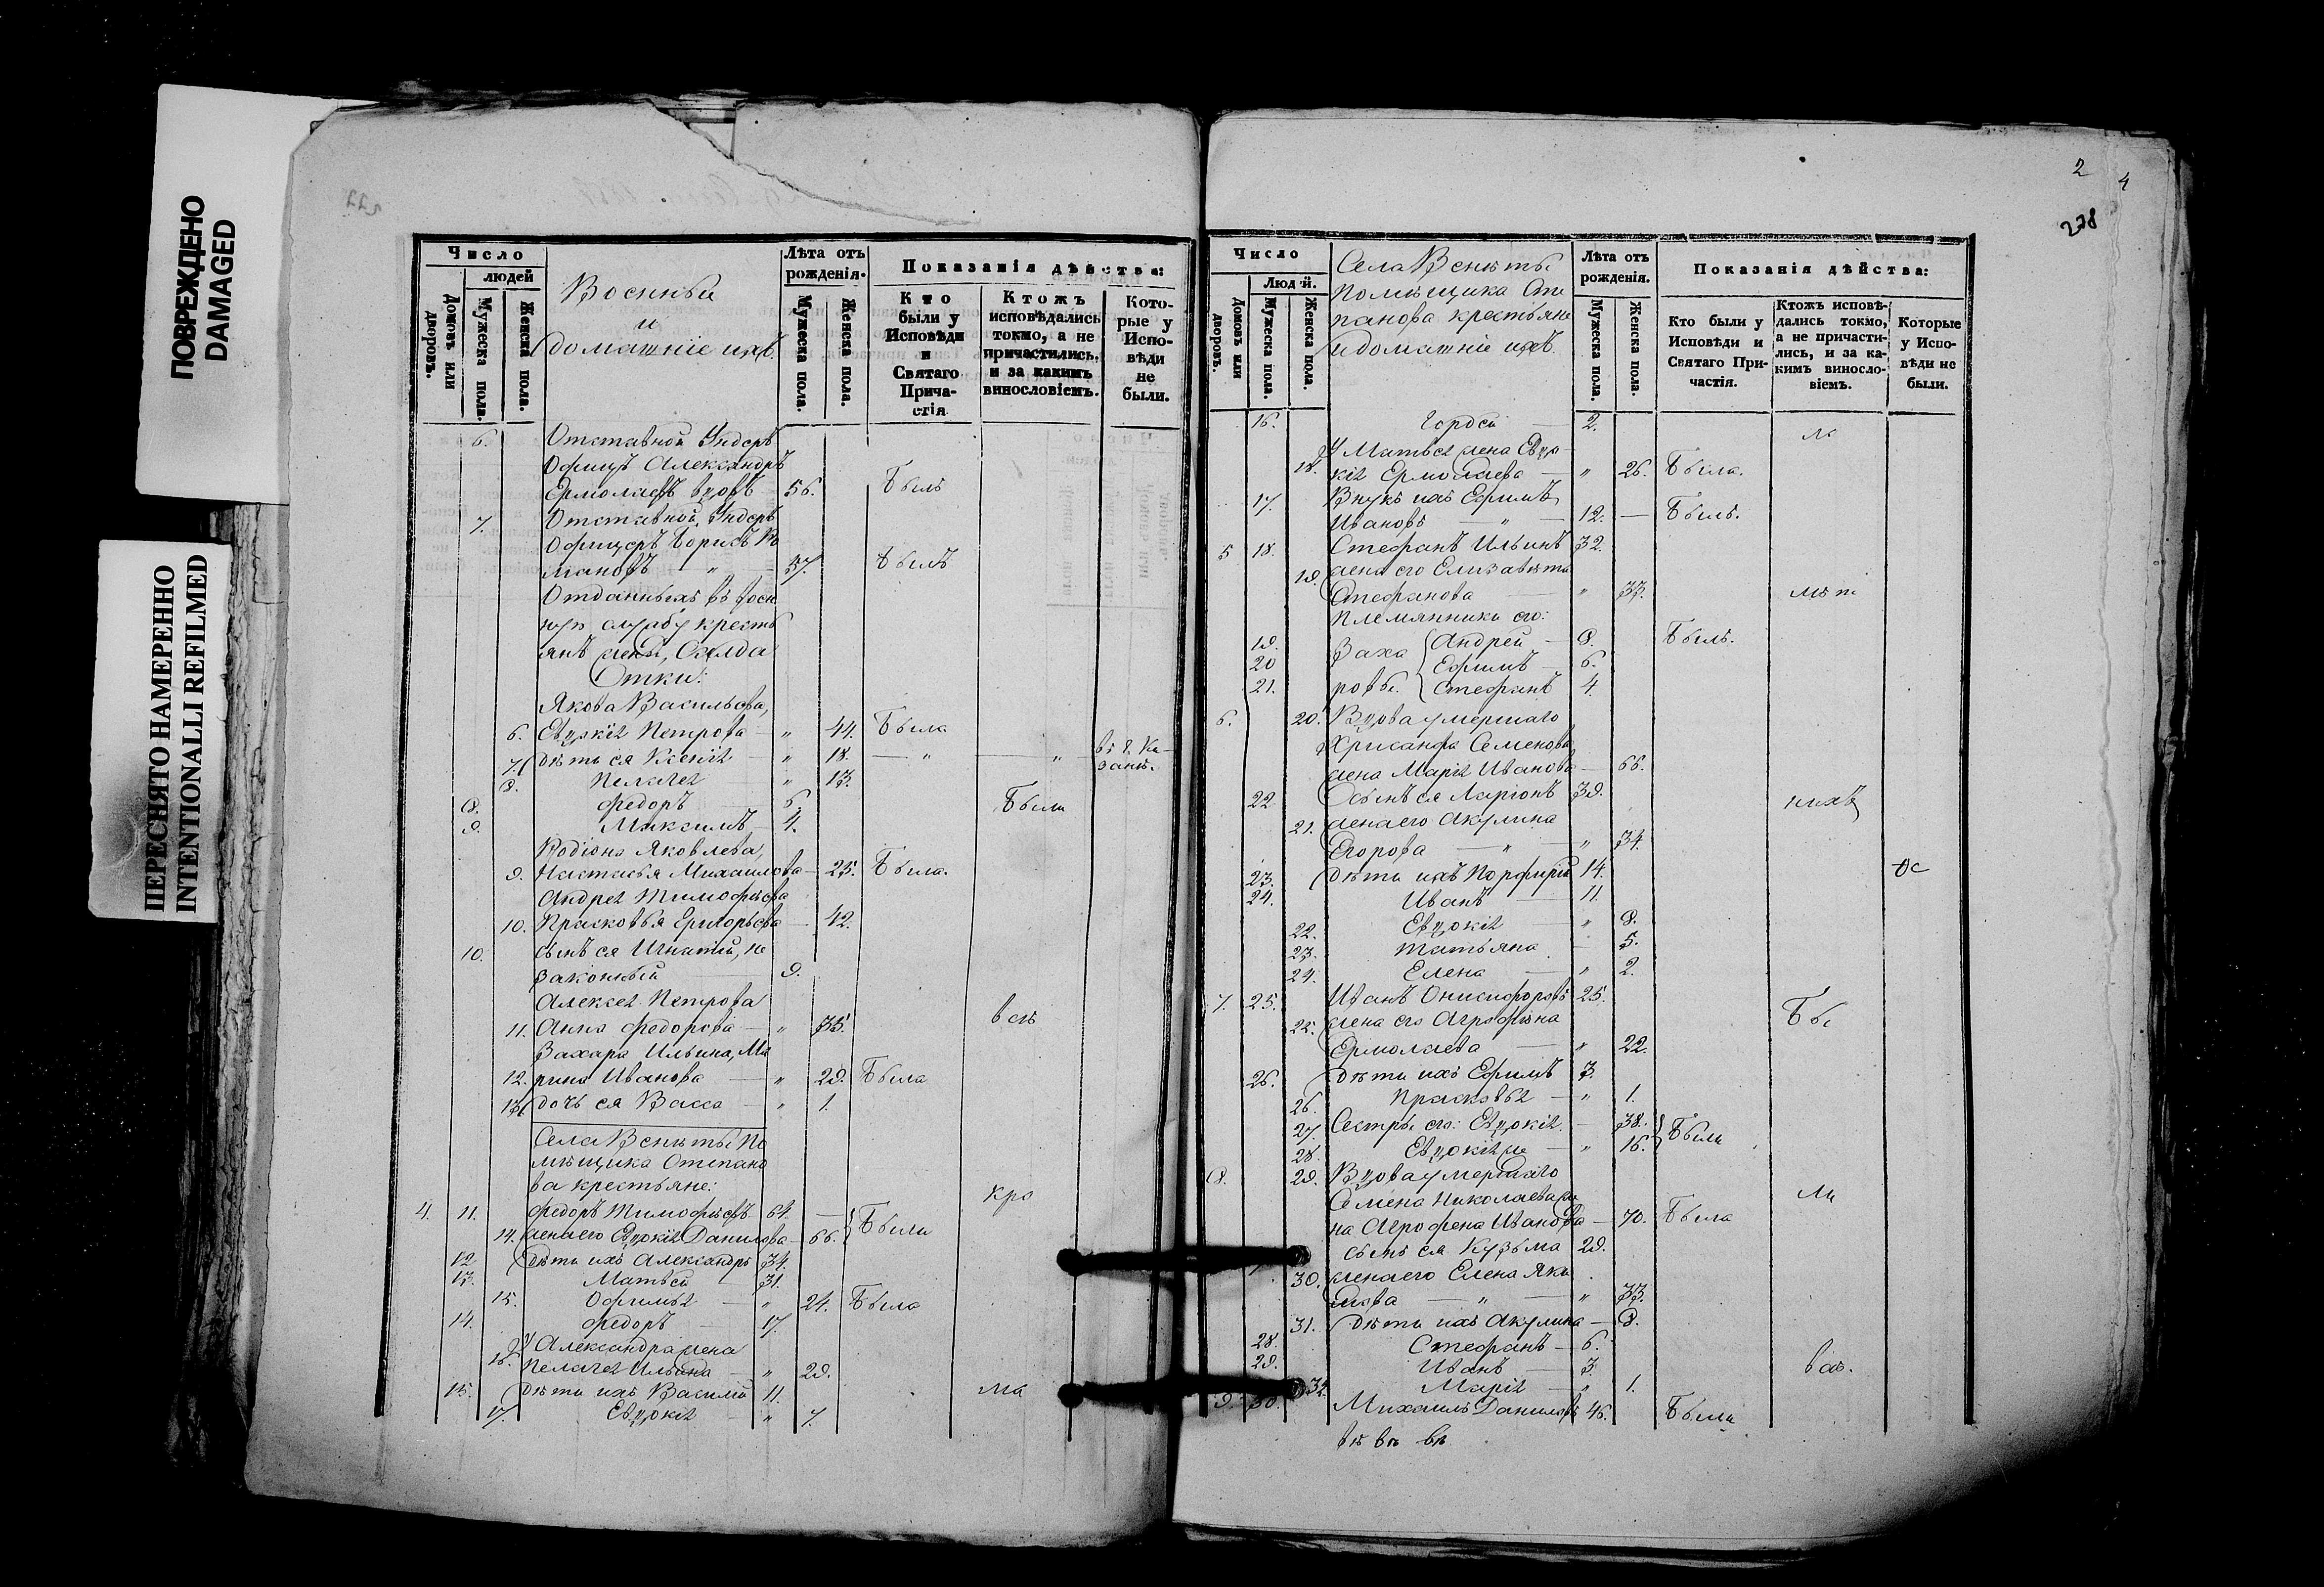 ПОВРЕЖДЕНО
DAMAGED
ПЕРЕСНЯТО НАМЕРЕННО
INTENTIONALLI REFILMED
277
Число
людей
Домовъ или дворовъ.
Мужеска пола.
Женска пола.
Военные
и
домашніе ихъ.
Лѣта отъ рожденія.
Мужеска пола.
Женска пола.
Показанія дѣйства:
Кто были у Исповѣди и Святаго Причастія
Ктожъ исповѣдались токмо, а не причастились. и за какимъ винословіемъ.
Которые у Исповѣди не были.
6. Отставной Ундеръ
Офицъ Александръ
Ермолаевъ вдовъ 56. Былъ
7. Отставной Ундеръ
Офицеръ Борисъ
мановъ " 57. былъ
Отданныхъ въ воен
ную службу кресть
янъ жены, Солда
отки:
Якова Васильева,
6. Евдокія Петрова " 44. Была
7. дѣти ея Ксенія " 18. — " " въ г. Ка-
зани.
8. Пелагея " 13.
8. Федоръ 6. Были
9. Максимъ 4.
Родіона Яковлева,
9. Настасья Михаилова 25. Была.
Андрея Тимофѣева
10. Прасковья Григорьева 42.
10. сынъ ея Игнатій, не
законный 9.
Алексея Петрова
11. Анна Федорова " 35. всѣ
Захара Ильина, Ма
12. рина Иванова " 29. Была
13. дочь ея Васса " 1.
Села Вснѣты По
мѣщика Степано
ва крестьяне:
кро
4. 11. Федоръ Тимофѣевъ 64.
14. жена его Евдокія Данилова 66. Были
12 дѣти ихъ Александръ 34.
13. Матвей 31.
15. Офимья " 24. Была
14. Федоръ 17.
У Александра жена
16. Пелагея Ильина " 29.
15. дѣти ихъ Василій 11. ма
17. Евдокія " 7.
2
4
278
Число
Людей.
Домовъ или дворовъ.
Мужеска пола.
Женска пола.
Села Вснѣты
помѣщика Сте
панова крестьяне
и домашніе ихъ.
Лѣта отъ рожденія.
Мужеска пола.
Женска пола.
Показанія дѣйства:
Кто были у Исповѣди и Святаго Причастія.
Ктожъ исповѣдались токмо, а не причастились, и за какимъ винословіемъ.
Которые у Исповѣди не были.
16. Гордей 2.
У Матвея жена Евдо
18. кія Ермолаева " 26. Была.
17. Внукъ ихъ Ефимъ
Ивановъ " 12. — Былъ.
5 18. Стефанъ Ильинъ 32.
19. жена его Елизавета
Стефанова " 33.
Племянники его:
19. Заха Андрей 8. Былъ.
20 Ефимъ 6.
21. ровы. Стефанъ 4.
6. 20. Вдова умершаго
Хрисанфа Семенова
жена Марія Иванова 66.
22. Сынъ ея Ларіонъ 39. нихъ
21. жена его Акулина
Егорова " " 34.
23. дѣти ихъ Порфирій 14.
24. Иванъ 11.
22. Евдокія " 8.
23. Татьяна 5.
24. Елена " 2.
7. 25. Иванъ Онисифоровъ 25. Бы
25. жена его Агрофѣна
Ермолаева " 22.
26. дѣти ихъ Ефимъ 3.
26. Прасковья " 1.
27. Сестры его: Евдокія 38. Были
28. Евдокія же " 16.
8. 29. Вдова умершаго
Семена Николаева же ли
на Агрофена Иванова 70. Была
сынъ ея Кузьма 29.
30. жена его Елена Яко
влева " " 33.
31. дѣти ихъ Акулина 8.
28. Стефанъ 6.
29. Иванъ 3. ваз.
32. Марія " 1.
9. 30. Михаилъ Даниловъ 46. Были